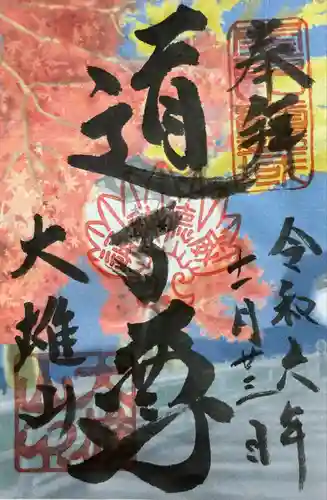 奉拝
令和六年
十一月廿三日
道了尊
大雄山